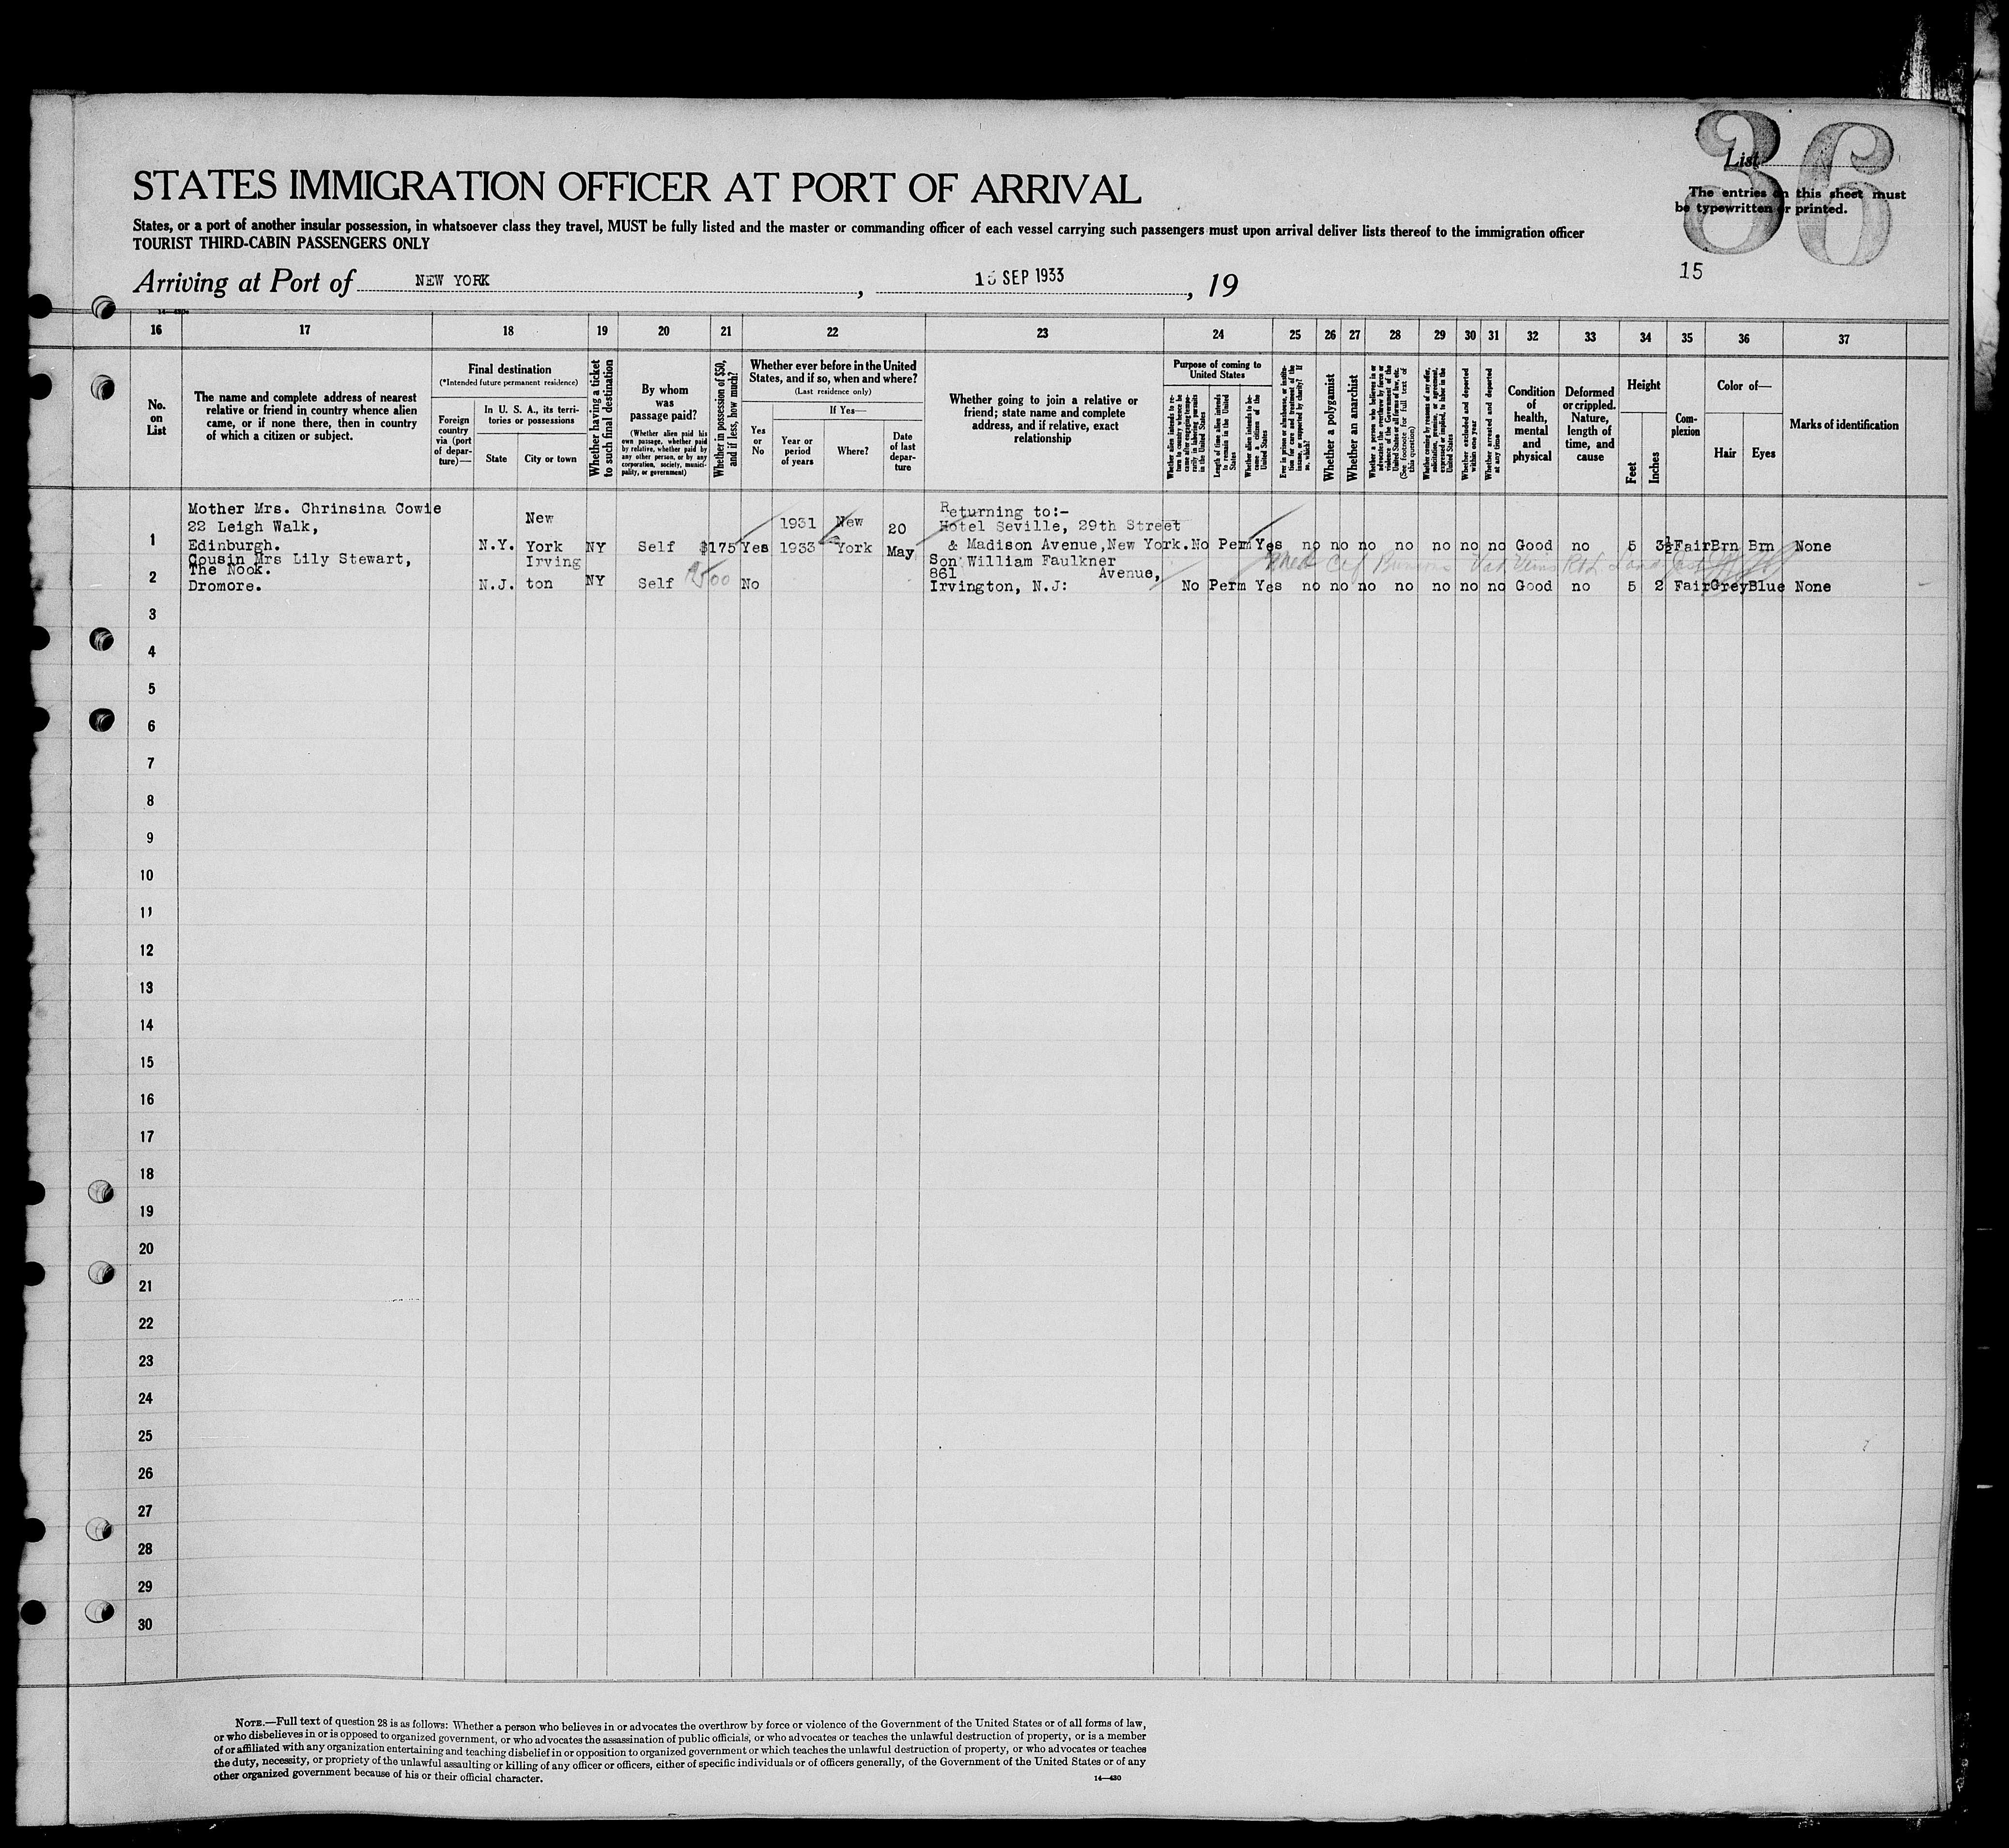 36
List
The entries on this sheet must
be typewritten or printed.
STATES IMMIGRATION OFFICER AT PORT OF ARRIVAL
States, or a port of another insular possession, in whatsoever class they travel, MUST be fully listed and the master or commanding officer of each vessel carrying such passengers must upon arrival deliver lists thereof to the immigration officer
TOURIST THIRD-CABIN PASSENGERS ONLY
15
Arriving at Port of NEW YORK, 15 SEP 1933, 19
16 17 18 19 20 21 22 23 24 25 26 27 28 29 30 31 32 33 34 35 36 37
No.
on
List
The name and complete address of nearest
relative or friend in country whence alien
came, or if none there, then in country
of which a citizen or subject.
Final destination
(*Intended future permanent residence)
Foreign
country
via (port
of depar-
ture)—
In U. S. A., its terri-
tories or possessions
State
City or town
Whether having a ticket
to such final destination
By whom
was
passage paid?
(Whether alien paid his
own passage, whether paid
by relative, whether paid by
any other person, or by any
corporation, society, munici-
pality, or government)
Whether in possession of $50,
and if less, how much?
Whether ever before in the United
States, and if so, when and where?
(Last residence only)
Yes
or
No
If Yes—
Year or
period
of years
Where?
Date
of last
depar-
ture
Whether going to join a relative or
friend; state name and complete
address, and if relative, exact
relationship
Purpose of coming to
United States
Whether alien intends to re-
turn to country whence he
came after engaging tempo-
rarily in laboring pursuits
in the United States
Length of time alien intends
to remain in the United
States
Whether alien intends to be-
come a citizen of the
United States
Ever in prison or almshouse, or institu-
tion for care and treatment of the
insane, or supported by charity? If
so, which?
Whether a polygamist
Whether an anarchist
Whether a person who believes in or
advocates the overthrow by force or
violence of the Government of the
United States or all forms of law, etc.
(See footnote for full text of
this question)
Whether coming by reasons of any offer,
solicitation, promise, or agreement,
expressed or implied, to labor in the
United States
Whether excluded and deported
within one year
Whether arrested and deported
at any time
Condition
of
health,
mental
and
physical
Deformed
or crippled.
Nature,
length of
time, and
cause
Height
Feet
Inches
Com-
plexion
Color of—
Hair
Eyes
Marks of identification
Mother Mrs. Chrinsina Cowie
22 Leigh Walk, New 1931 New 20 Returning to:-
Hotel Seville, 29th Street
1 Edinburgh. N.Y. York NY Self $175 Yes 1933 York May & Madison Avenue, New York. No Perm Yes no no no no no no no Good no 5 3½ Fair Brn Brn None
Cousin Mrs Lily Stewart, Irving Son William Faulkner Med Cer
The Nook. 861 Avenue,
2 Dromore. N.J. ton NY Self No Irvington, N.J: No Perm Yes no no no no no no no Good no 5 2 Fair Grey Blue None
3
4
5
6
7
8
9
10
11
12
13
14
15
16
17
18
19
20
21
22
23
24
25
26
27
28
29
30
NOTE.—Full text of question 28 is as follows: Whether a person who believes in or advocates the overthrow by force or violence of the Government of the United States or of all forms of law,
or who disbelieves in or is opposed to organized government, or who advocates the assassination of public officials, or who advocates or teaches the unlawful destruction of property, or is a member
of or affiliated with any organization entertaining and teaching disbelief in or opposition to organized government or which teaches the unlawful destruction of property, or who advocates or teaches
the duty, necessity, or propriety of the unlawful assaulting or killing of any officer or officers, either of specific individuals or of officers generally, of the Government of the United States or of any
other organized government because of his or their official character.
14—430